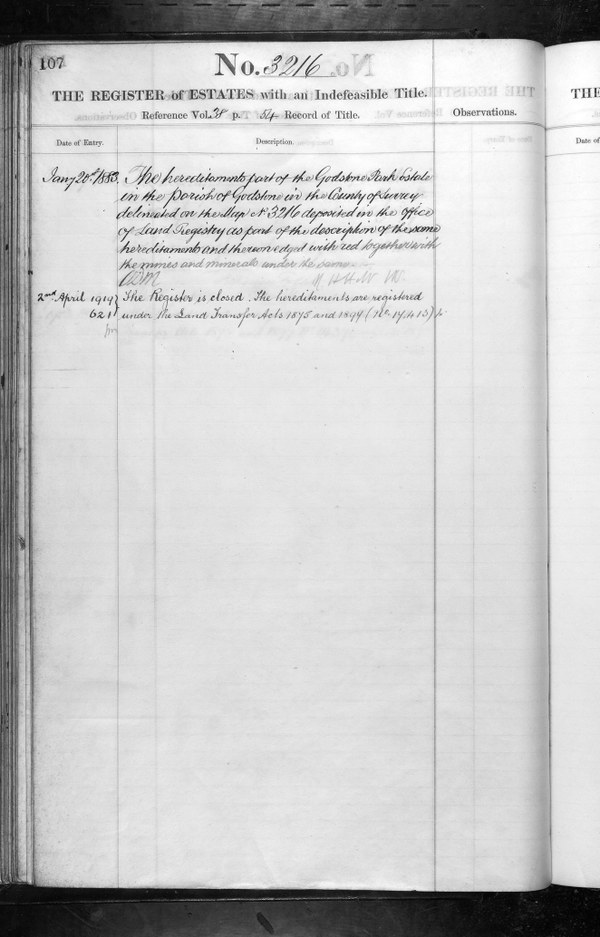 107
No. 3216
THE REGISTER of ESTATES with an Indefeasible Title.
Reference Vol. 38 p. 54 Record of Title.
Observations.
Date of Entry.
Description.
Jany 20th 1883.
The hereditaments part of the Godstone Park Estate
in the parish of Godstone in the County of Surrey
delineated on the Map No 3216 deposited in the office
of Land Registry as part of the description of the same
hereditaments and thereon edged with red together with
the mines and minerals under the same.
2nd April 1919
621
The Register is closed. The hereditaments are registered
under the Land Transfer Acts 1875 and 1897
THE
Date of